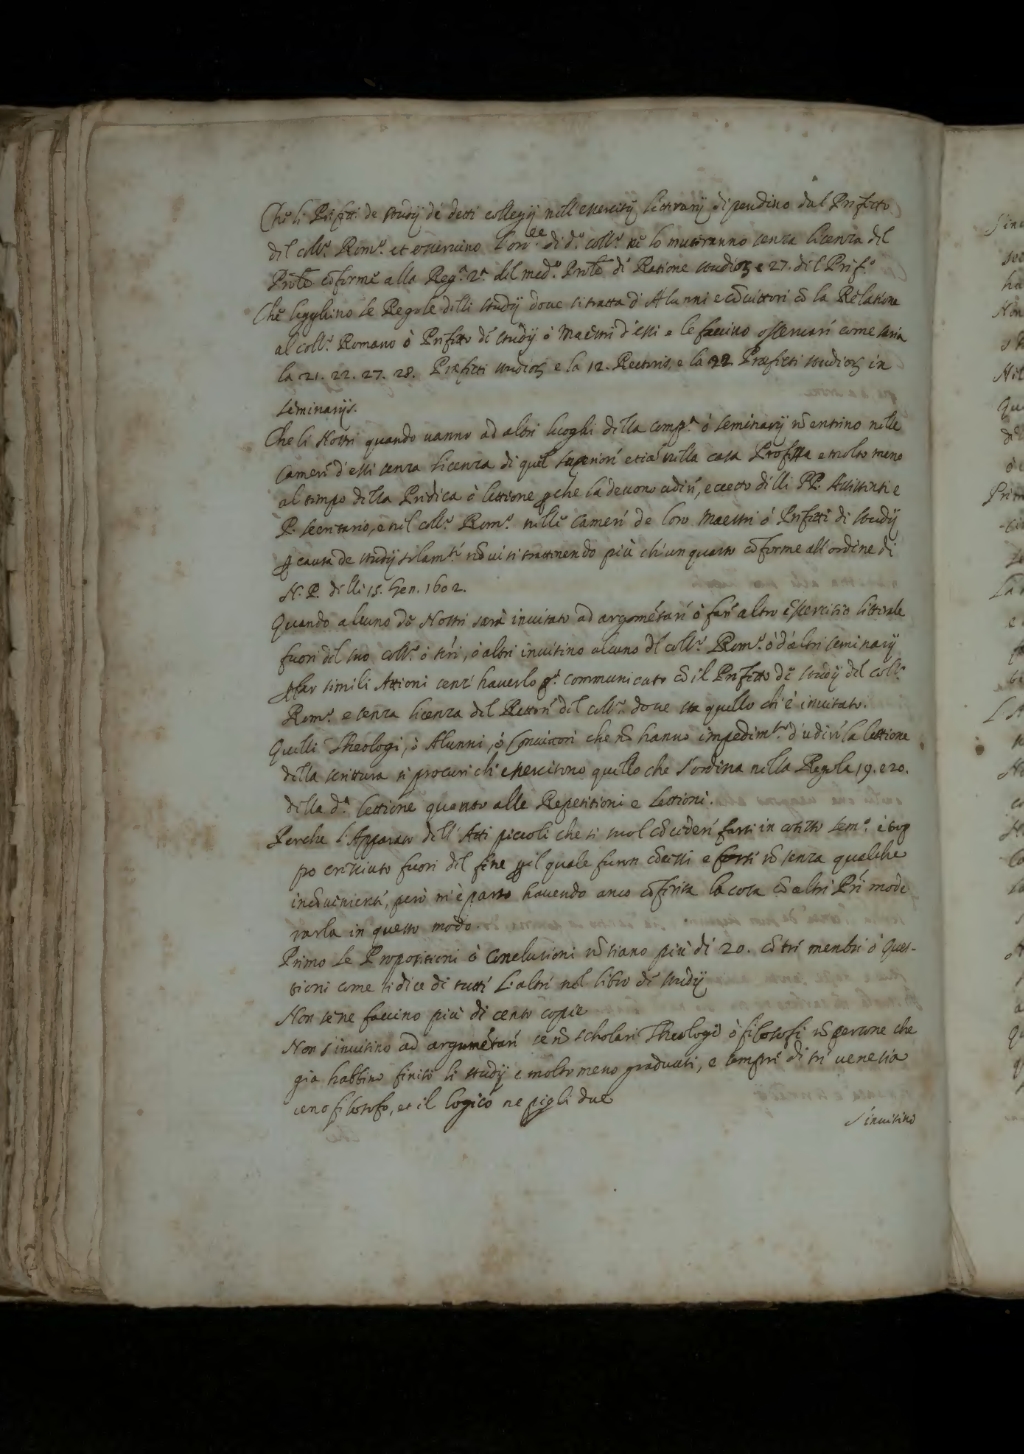 Che li Prefetti de studij de detti collegij nell'essercitij litterarij dipendino dal Prefetto
del coll.º Rom.º et osservino l'ord.e di d.º coll.º ne lo muteranno senza licenza del
Prõle cõforme alla Reg.ª 2.ª del med.º Prõle di Ratione studior e 27. del Pref.º
Che legghino le Regole delli studij dove si tratta di Alunni e cõvittori cõ la Relatione
al coll.º Romano ò Prefetto di studij ò Maestri d'essi e le faccino osservari come saria
la 21. 22. 27. 28. Prefetti studior e la 12. Rectoris, e la 22 Praefecti studior in
seminarijs.
Che li Nostri quando vanno ad altri luoghi della comp.ª ò seminarij nõ entrino nelle
Cameri d'essi senza licenza di quel superiori etia nella casa Professa e molto meno
al tempo della Predica ò lettione che la devono udiri, eccetto delli PP. Assistenti e
P. secretario, e nel coll.º Rom.º nelle Cameri de loro Maestri ò Prefetti di studij
causa de studij solam.ti nõ vi si trattenendo più ch'un quarto cõforme all'ordine di
N. P. delli 15. Gen. 1602.
Quando alcuno de Nostri sarà invitato ad argomẽtari ò fari altro essercitio litterale
fuori del suo coll.º ò altri invitino alcuno del coll.º Rom.º ò d'altri seminarij
far simili Attioni senz'haverlo p.ª communicato cõ il Prefetto de studij del coll.º
Rom.º e senza licenza del Rettori del coll.º dove sta quello ch'è invitato.
Quelli Theologi, ò Alunni, ò Convittori che nõ hanno impedim.to d'udiri la lettione
della scrittura si procuri ch'essercitino quello che s'ordina nella Regola 19. e 20.
della d.ª lettione quanto alle Repetitioni e Lettioni.
Perche l'Apparato dell'Atti piccoli che si suol cõcederi farsi in cotesto Sem.º è trop
po cresciuto fuori del fine il quale furon cõcessi e forsi nõ senza qualche
incõvenienti, però mi è parso havendo anco cõferita la cosa cõ altri Pri mode
rarla in questo modo.
Primo le Propositioni ò Conclusioni nõ siano più di 20. cõ tri membri ò Ques-
tioni come si dice di tutti l'altri nel libro di studij
Non se ne faccino più di cento copie
Non s'invitino ad argumẽtari se nõ scholari Theologi ò filosofi nõ persone che
gia habbino finiti li studij e molto meno graduati, e sempri di tri ve ne sia
uno filosofo, et il logico ne pigli due
s'invitino